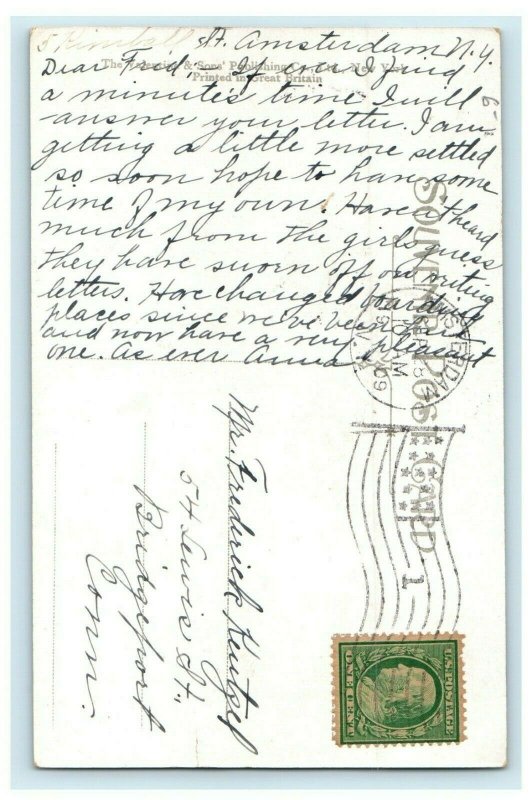 5 Kimball St. Amsterdam N.Y.
The Valentine & Sons' Publishing Co., Ltd., New York
Printed in Great Britain
Dear Fred - If ever I find
a minute's time I will
answer your letter. I am
getting a little more settled
so soon hope to have some
time of my own. Haven't heard
much from the girls guess
they have sworn off on writing
letters. Have changed boarding
places since we've been here
and now have a very pleasant
one. As ever Anna
6
SOUVENIR POST CARD
AMSTERDAM
AM
N.Y.
1
Mr. Fredrick Hutzel
54 Lewis St.,
Bridgeport
Conn.
U.S. POSTAGE
ONE CENT